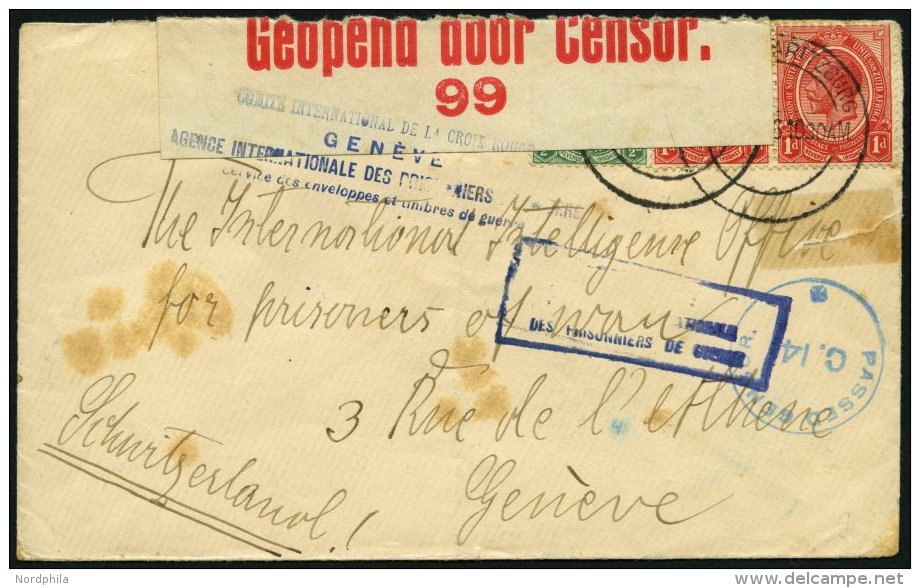 Geopend door Censor.
99
COMITÉ INTERNATIONAL DE LA CROIX ROUGE
GENÈVE
AGENCE INTERNATIONALE DES PRISONNIERS
Service des enveloppes et timbres de guerre
ARITZBURG
30AM
UNIE VAN ZUID AFRIKA
POSTAGE
1d 1d
The International Intelligense Office
for prisoners of war
DES PRISONNIERS DE GUERRE
PASSED CENSOR.
C.14
3 Rue de l'Athene
Genève
Schwitzerland!
Nordphila
delcampe.net